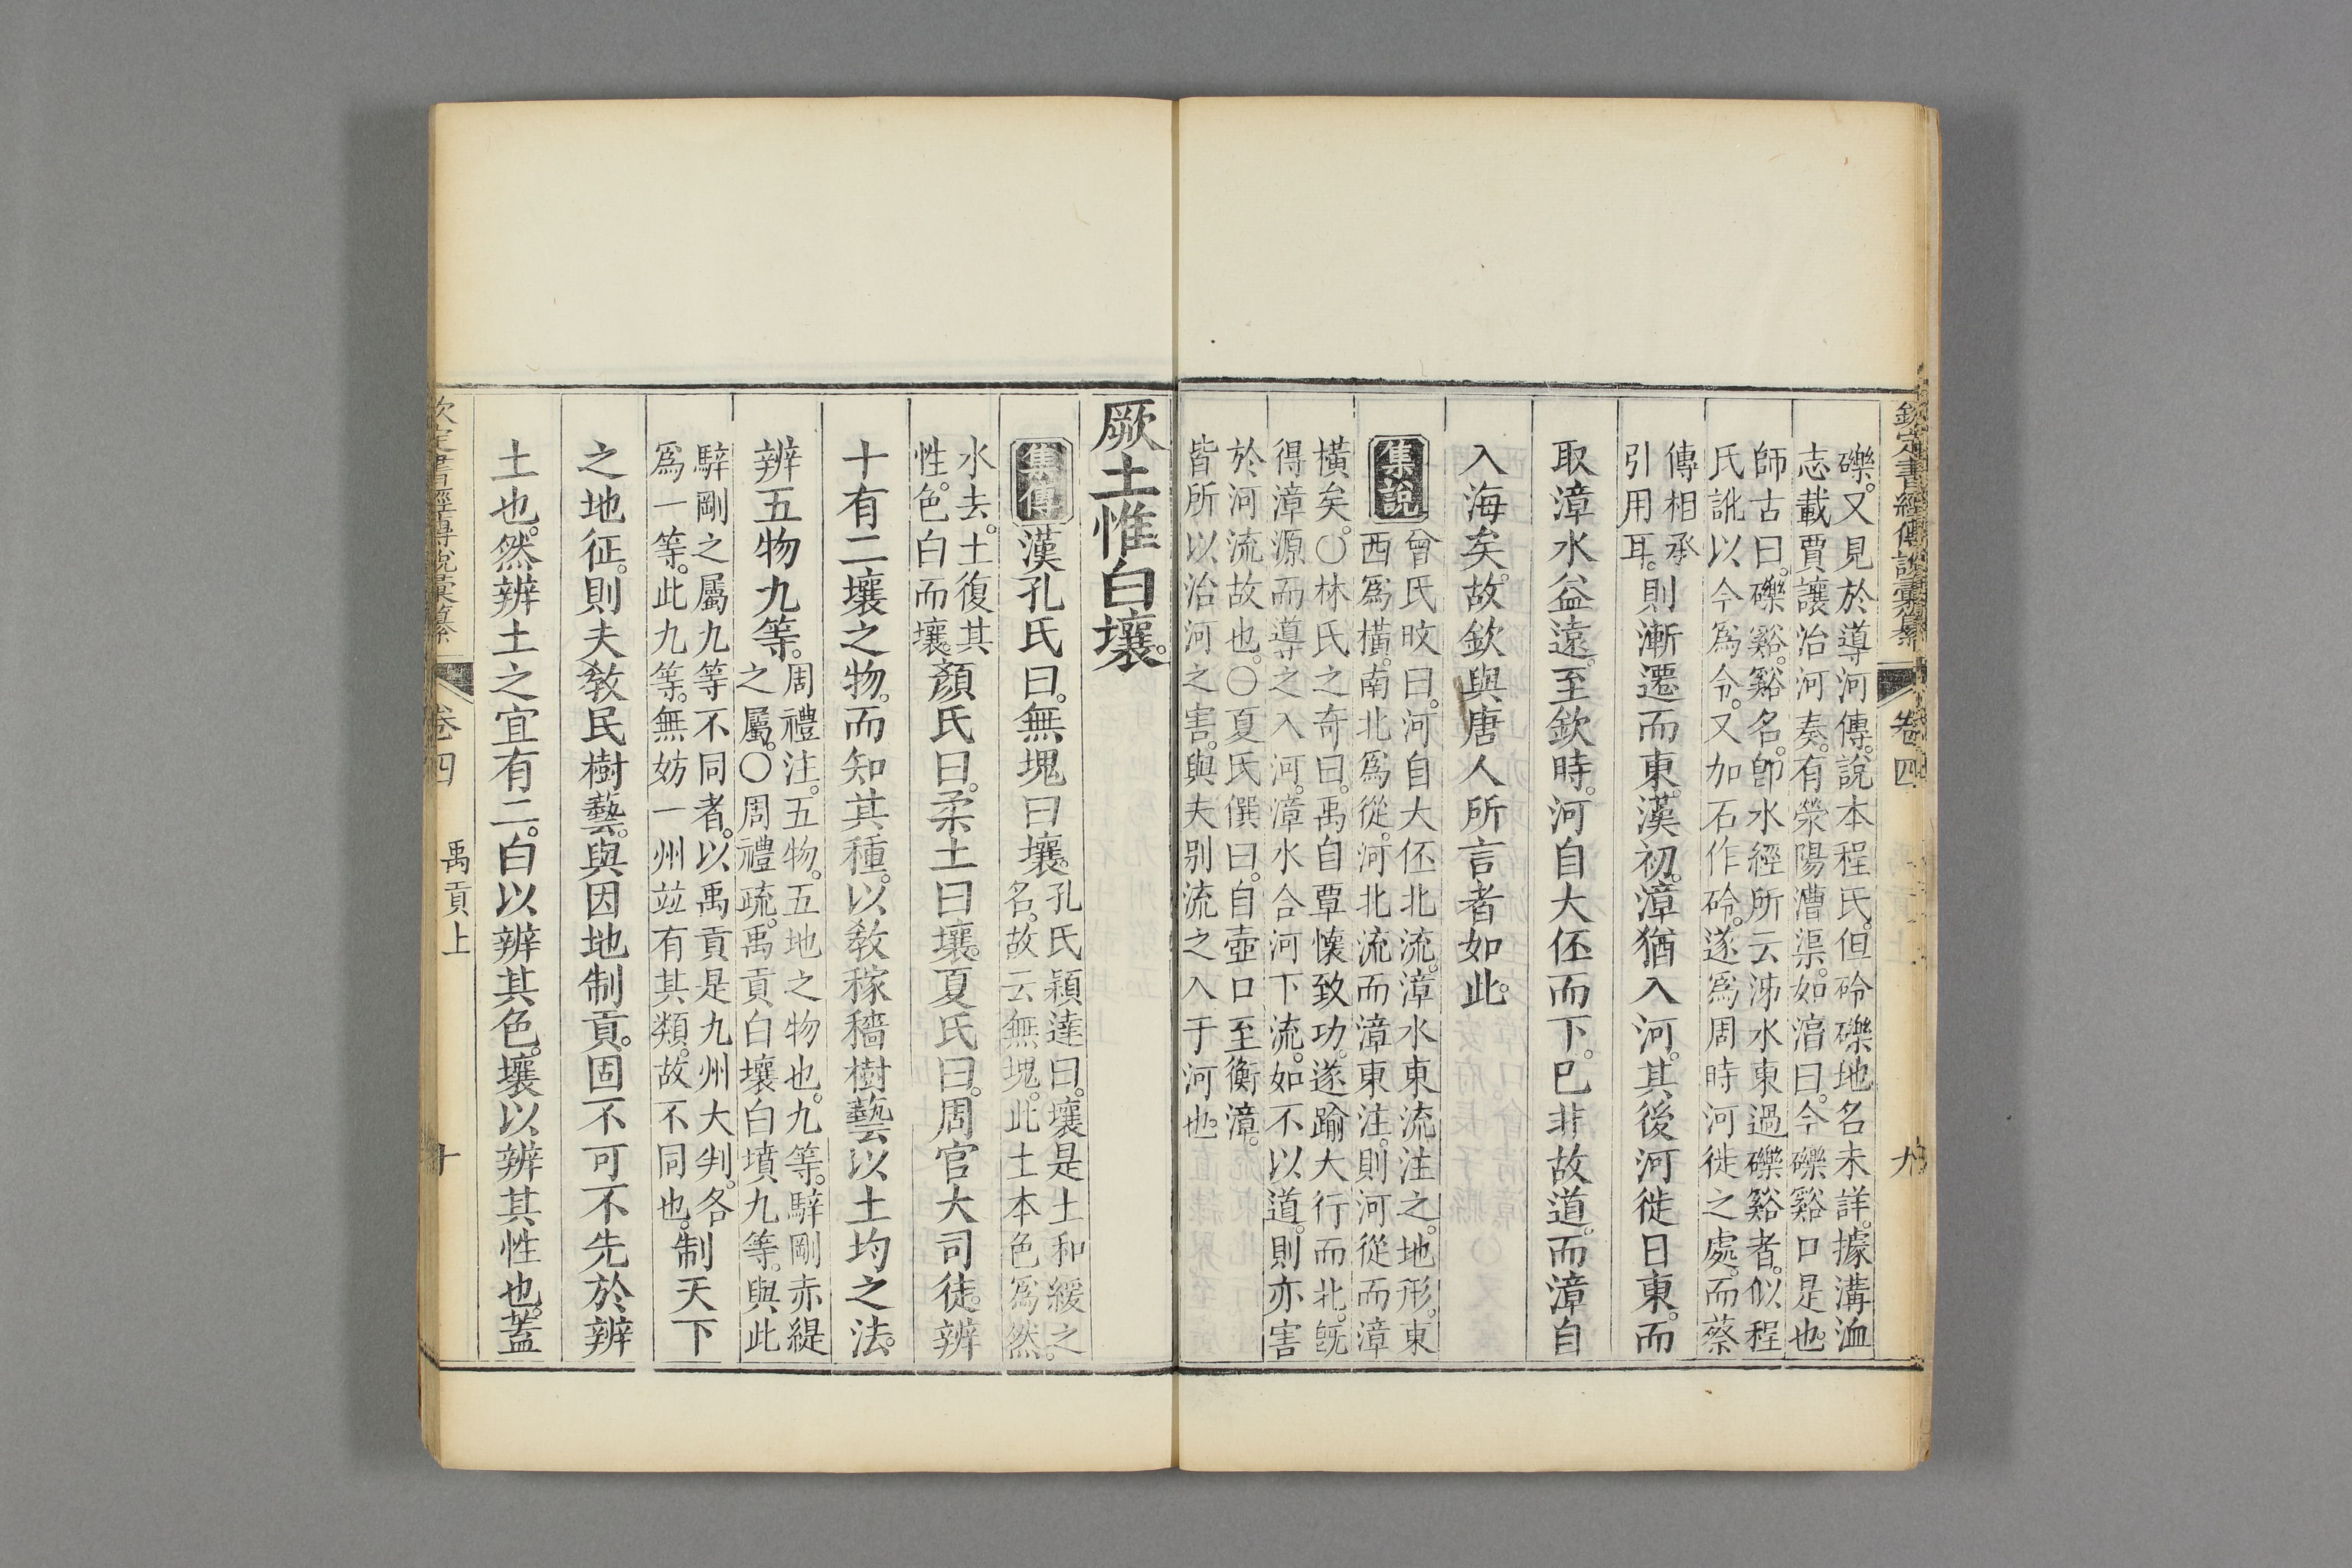 欽定書經傳說彙纂 卷四 九
礫。又見於導河傳。說本程氏。但砱礫地名未詳。據溝洫
志載賈讓治河奏。有滎陽漕渠。如淳曰。今礫谿口是也。
師古曰。礫谿。谿名。卽水經所云泲水東過礫谿者。似程
氏訛以今爲令。又加石作砱。遂爲周時河徙之處。而蔡
傳相承
引用耳。則漸遷而東。漢初。漳猶入河。其後河徙日東。而
取漳水益遠。至欽時。河自大伾而下。已非故道。而漳自
入海矣。故欽與唐人所言者如此。
集說 曾氏旼曰。河自大伾北流。漳水東流注之。地形。東
西爲橫。南北爲從。河北流而漳東注。則河從而漳
橫矣。〇林氏之奇曰。禹自覃懷致功。遂踰大行而北。旣
得漳源而導之入河。漳水合河下流。如不以道。則亦害
於河流故也。〇夏氏僎曰。自壺口至衡漳。
皆所以治河之害。與夫别流之入于河也。
厥土惟白壤。
集傳 漢孔氏曰。無塊曰壤。孔氏穎達曰。壤是土和緩之
名。故云無塊。此土本色爲然。
水去。土復其
性。色白而壤。顏氏曰。柔土曰壤。夏氏曰。周官大司徒。辨
十有二壤之物。而知其種。以敎稼穡樹藝。以土均之法。
辨五物九等。周禮注。五物。五地之物也。九等。騂剛赤緹
之屬。〇周禮疏。禹貢白壤白墳九等。與此
騂剛之屬九等不同者。以禹貢是九州大判。各
爲一等。此九等。無妨一州竝有其類。故不同也。制天下
之地征。則夫敎民樹藝。與因地制貢。固不可不先於辨
土也。然辨土之宜有二。白以辨其色。壤以辨其性也。蓋
欽定書經傳說彙纂 卷四 禹貢上 十